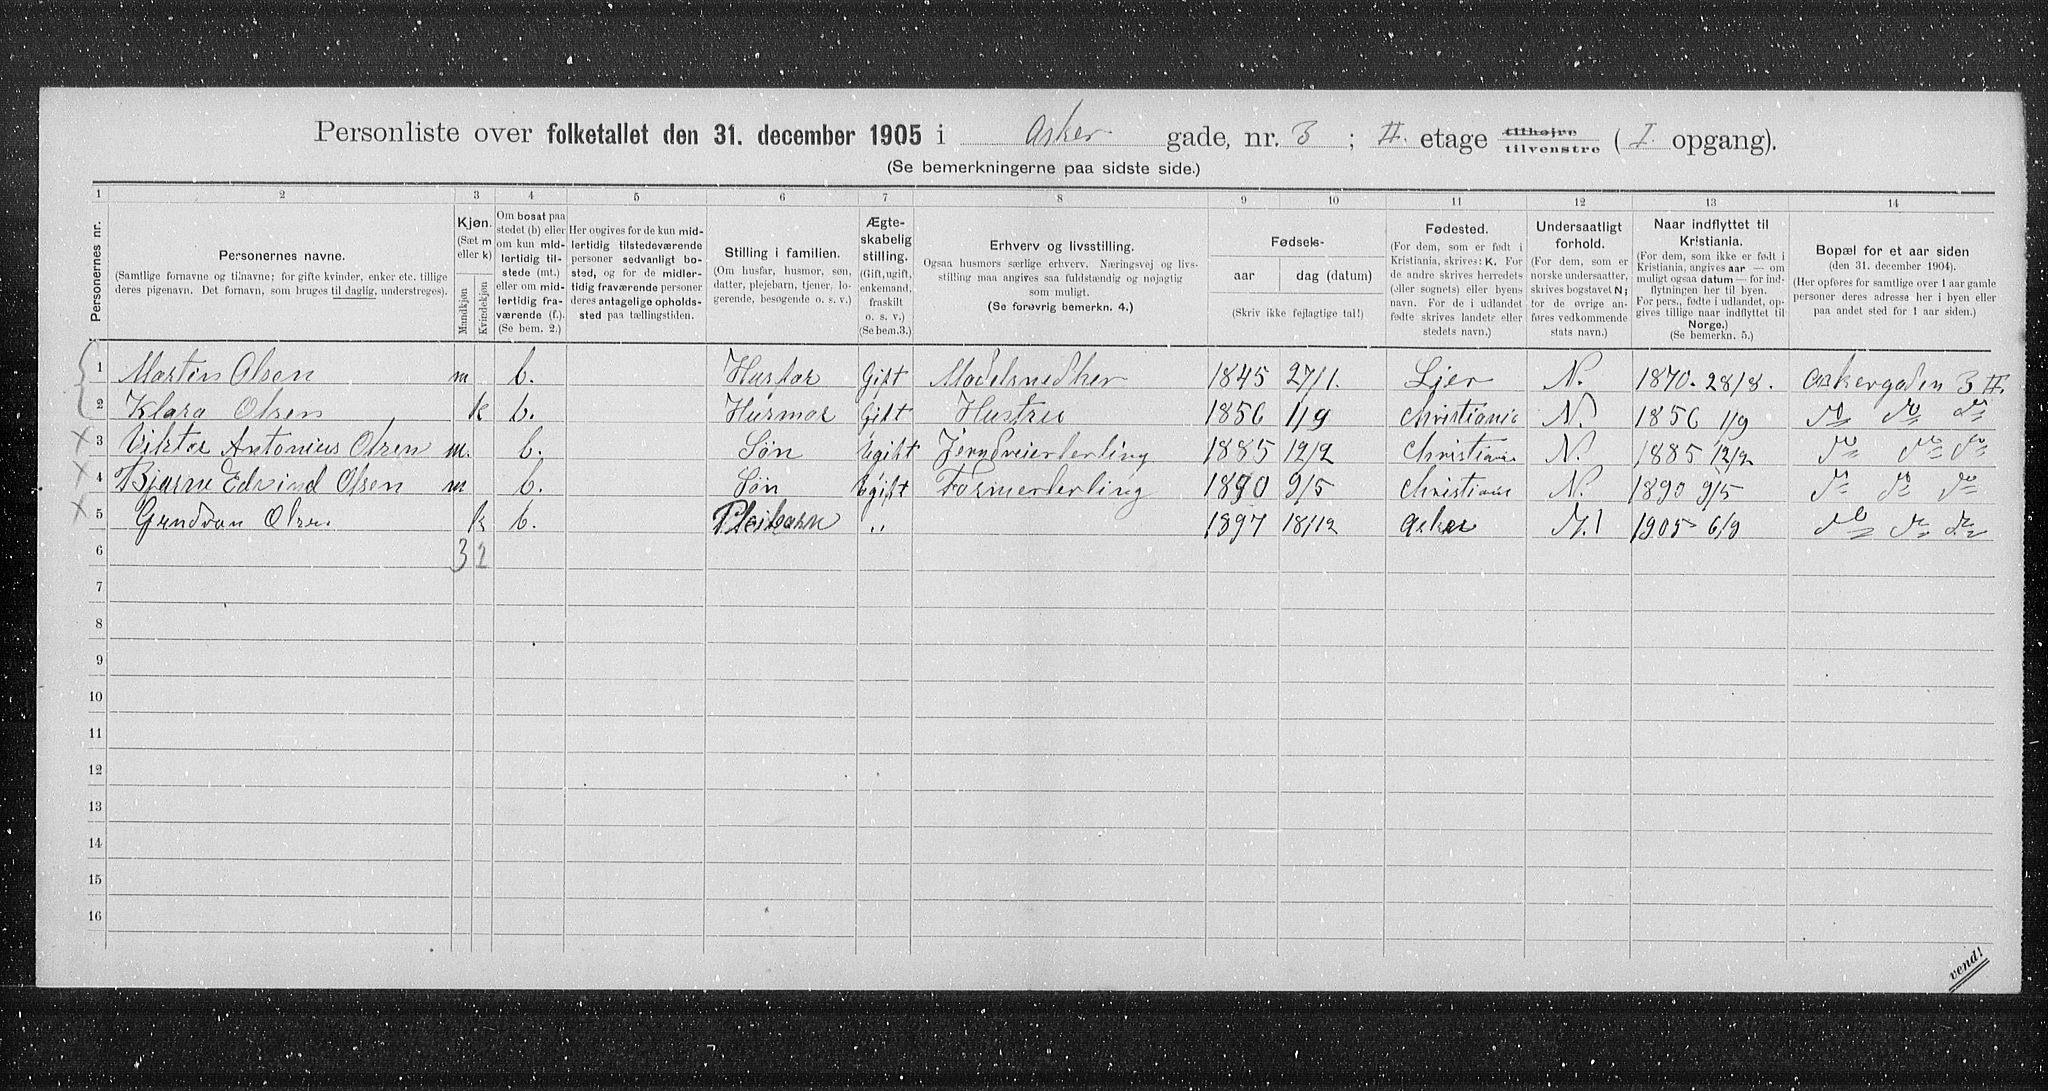 Personliste over folketallet den 31. december 1905 i Asker gade, nr. 3; II. etage tilhøjre tilvenstre (I. opgang).
(Se bemerkningerne paa sidste side.)
1 2 3 4 5 6 7 8 9 10 11 12 13 14
Personernes nr.
Personernes navne.
(Samtlige fornavne og tilnavne; for gifte kvinder, enker etc. tillige
deres pigenavn. Det fornavn, som bruges til daglig, understreges).
Kjøn.
(Sæt m
eller k)
Mandkjøn
Kvindekjøn
Om bosat paa
stedet (b) eller
om kun mid-
lertidig til-
stede (mt.)
eller om mid-
lertidig fra-
værende (f.).
(Se bem. 2.)
Her opgives for de kun mid-
lertidig tilstedeværende
personer sedvanligt bo-
sted, og for de midler-
tidig fraværende personer
deres antagelige opholds-
sted paa tællingstiden.
Stilling i familien.
(Om husfar, husmor, søn,
datter, plejebarn, tjener, lo-
gerende, besøgende o. s. v.)
Ægte-
skabelig
stilling.
(Gift, ugift,
enkemand,
fraskilt
o. s. v.)
(Se bem.3.)
Erhverv og livsstilling.
Ogsaa husmors særlige erhverv. Næringsvej og livs-
stilling maa angives saa fuldstændig og nøjagtig
som muligt.
(Se forøvrig bemerkn. 4.)
Fødsels-
aar
dag (datum)
(Skriv ikke fejlagtige tal!)
Fødested.
(For dem, som er født i
Kristiania, skrives: K. For
de andre skrives herredets
(eller sognets) eller byens
navn. For de i udlandet
fødte skrives landets eller
stedets navn.)
Undersaatligt
forhold.
(For dem, som er
norske undersaatter,
skrives bogstavet N;
for de øvrige an-
føres vedkommende
stats navn.)
Naar indflyttet til
Kristiania.
(For dem, som ikke er født i
Kristiania, angives aar — om
muligt ogsaa datum — for ind-
flytningen her til byen.
For pers., fødte i udlandet, op-
gives tillige naar indflyttet til
Norge.)
(Se bemerkn. 5.)
Bopæl for et aar siden
(den 31. december 1904).
(Her opføres for samtlige over 1 aar gamle
personer deres adresse her i byen eller
paa andet sted for 1 aar siden.)
1 Martin Olsen m b. Husfar Gift Modelsnedker 1845 27/1. Lier N. 1870. 28/8. Askergaden 3 II.
2 Klara Olsen k b. Husmor Gift Hustru 1856 1/9 Christiania N. 1856 1/9 do do do
3 Viktor Antonius Olsen m. b. Søn Ugift 1885 12/2 Christiania N. 1885 12/2 do do do
4 Bjarne Edvind Olsen m b. Søn Ugift Formerlerling 1890 9/5 Christiania N. 1890 9/5 do do do
5 k b. Pleibarn „ 1897 18/12 Asker N. 1905 6/9 do do do
6 3 2
7
8
9
10
11
12
13
14
15
16
vend!